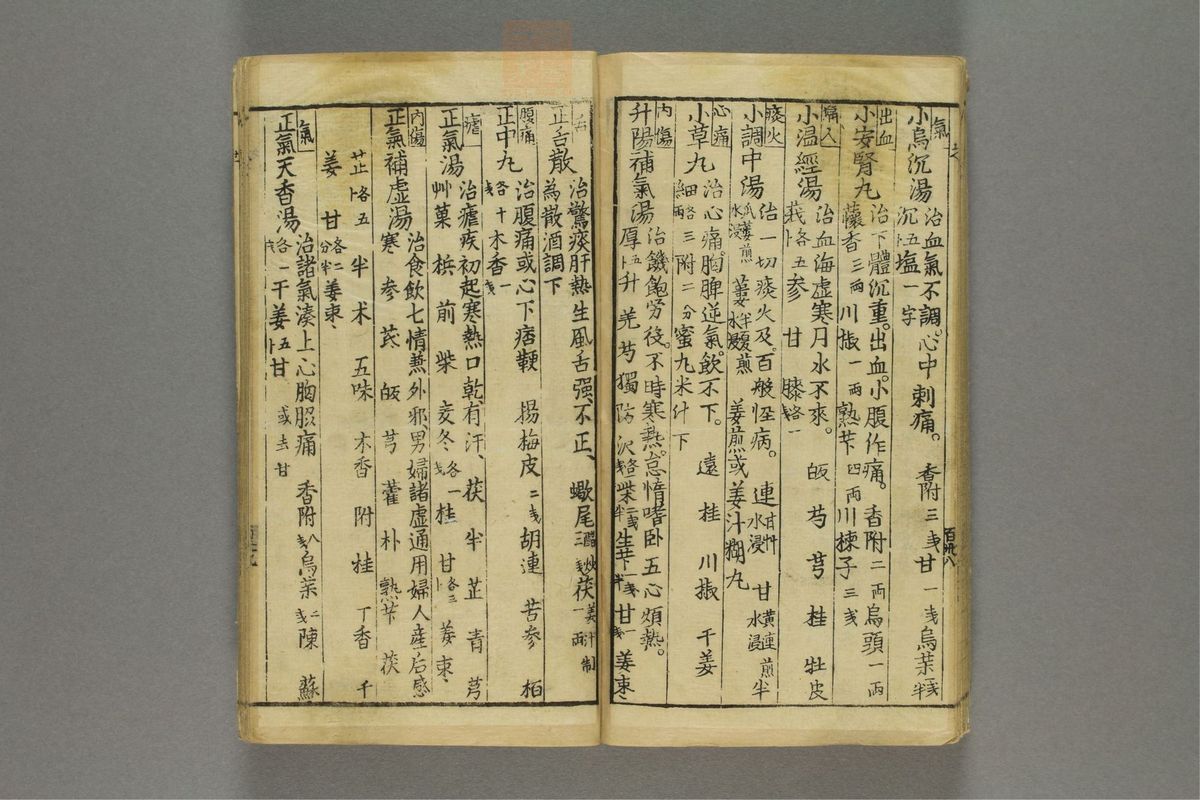 氣
小烏沉湯 治血氣不調。心中刺痛。 香附三戔甘一戔烏藥一戔半
沉五卜塩一字
出血
小安腎丸 治下體沉重。出血。小腹作痛。 香附二兩烏頭一兩
蘹香三兩川椒一兩熟苄四兩川楝子三戔
婦人
小温經湯 治血海虚寒月水不來。 皈芍芎桂牡皮
莪各五卜参甘膝各一戔
痰火
小調中湯 治一切痰火及。百般怪病。 連甘艸水浸甘黃連煎水浸半
姜煎或姜汁糊丸
心痛
小草丸 治心痛。胸脾逆氣。飲不下。 遠桂川椒干姜
細各三兩附二分蜜丸米什下
內傷
升陽補氣湯 治饑飽勞役。不時寒熱。怠惰嗜卧五心煩熱。
厚五卜升羌芍獨防沢各一戔柴二戔半生苄一戔半甘一戔姜棗
舌
正舌散 治驚痰肝熱生風舌强、不正、 蠍尾醋炒三戔茯姜汁制一兩
為散酒調下
腹痛
正中丸 治腹痛或心下痞鞕 揚梅皮二戔胡連苦參栢
各十戔木香一戔
瘧
正氣湯 治瘧疾初起寒熱口乾、有汗、 茯半芷青芎
艸菓梹前柴麥冬各一戔桂甘各三卜姜棗
內傷
正氣補虚湯 治食飲七情兼外邪、男婦諸虚通用婦人産后感
寒 参芪皈芎藿朴熟苄茯
芷各五卜半术五味木香附桂丁香干
姜甘各二分半姜棗
氣
正氣天香湯 治諸氣湊上心胸服痛 香附八戔烏藥二戔陳蘇
各一戔干姜五卜甘或去甘
百卅八